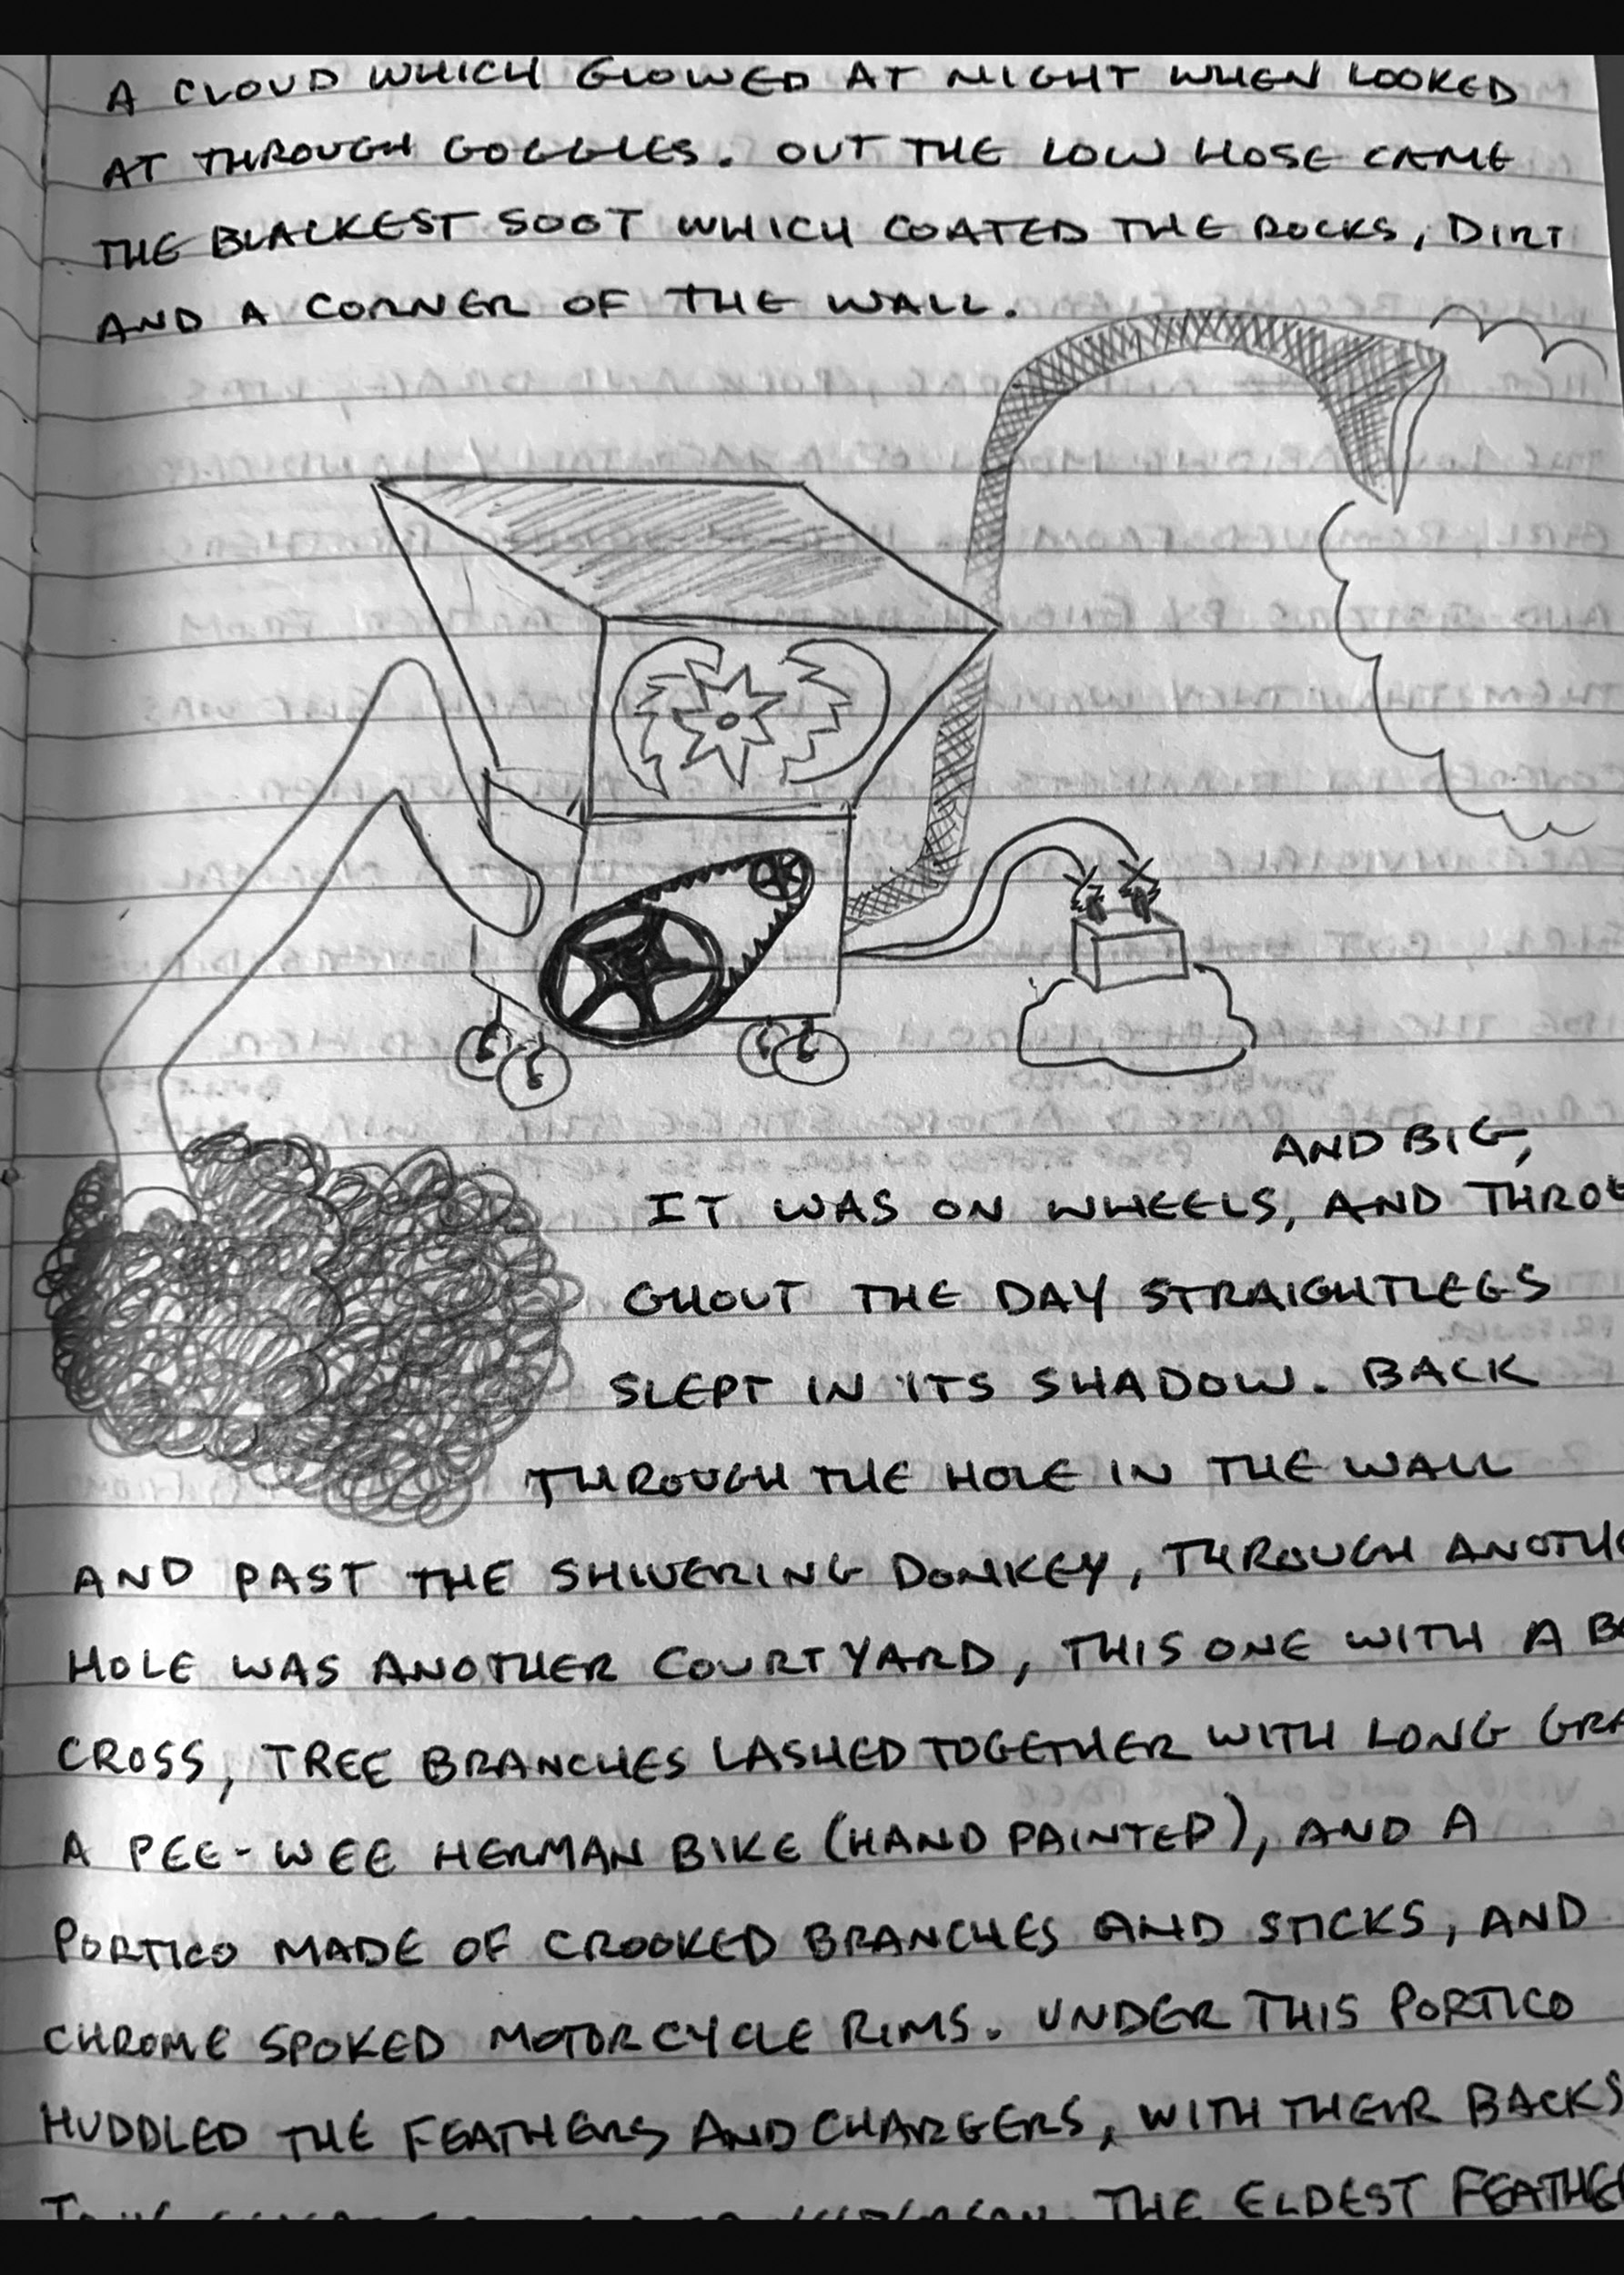 A CLOUD WHICH GLOWED AT NIGHT WHEN LOOKED
AT THROUGH GOGGLES. OUT THE LOW HOSE CAME
THE BLACKEST SOOT WHICH COATED THE ROCKS, DIRT
AND A CORNER OF THE WALL.
AND BIG,
IT WAS ON WHEELS, AND THROU
GHOUT THE DAY STRAIGHTLEGS
SLEPT IN ITS SHADOW. BACK
THROUGH THE HOLE IN THE WALL
AND PAST THE SHIVERING DONKEY, THROUGH ANOTHE
HOLE WAS ANOTHER COURTYARD, THIS ONE WITH A
CROSS, TREE BRANCHES LASHED TOGETHER WITH LONG GRA
A PEE-WEE HERMAN BIKE (HAND PAINTED), AND A
PORTICO MADE OF CROOKED BRANCHES AND STICKS, AND
CHROME SPOKED MOTORCYCLE RIMS. UNDER THIS PORTICO
HUDDLED THE FEATHERS AND CHARGERS, WITH THEIR BACKS
THE ELDEST FEATHE